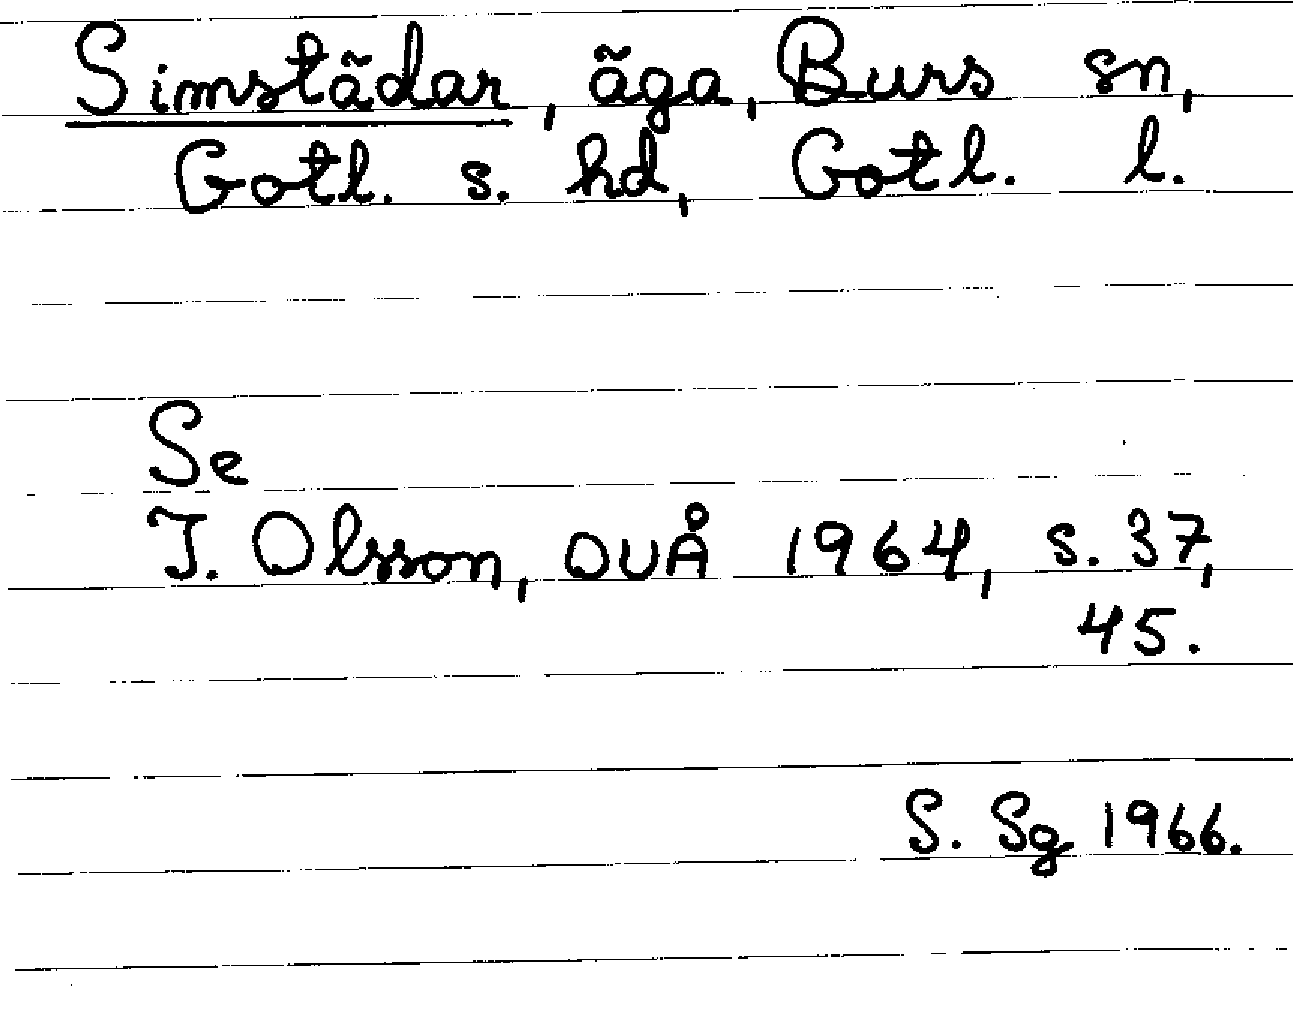 Simstädar, äga, Burs sn,
Gotl. s. hd, Gotl. l.
Se
I. Olsson, OUÅ 1964, s. 37,
45.
S. Sg 1966.